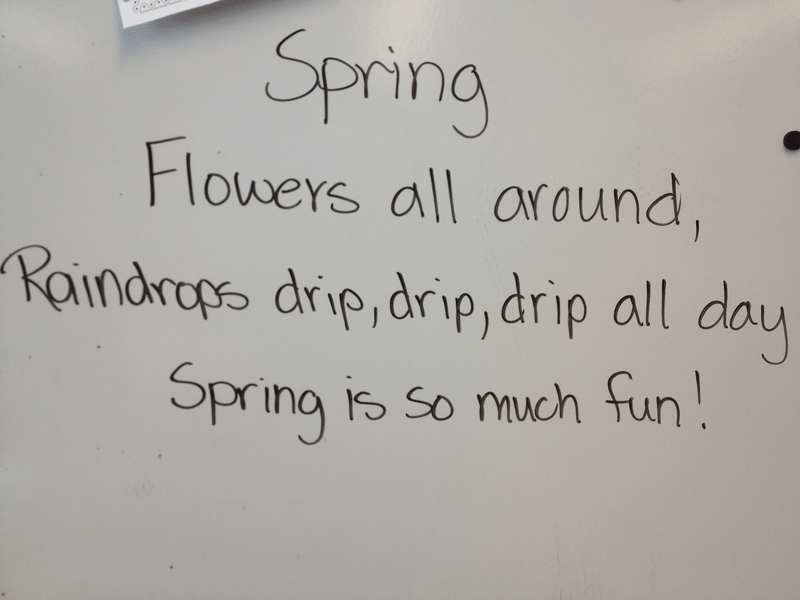 Spring
Flowers all around,
Raindrops drip, drip, drip all day
Spring is so much fun!